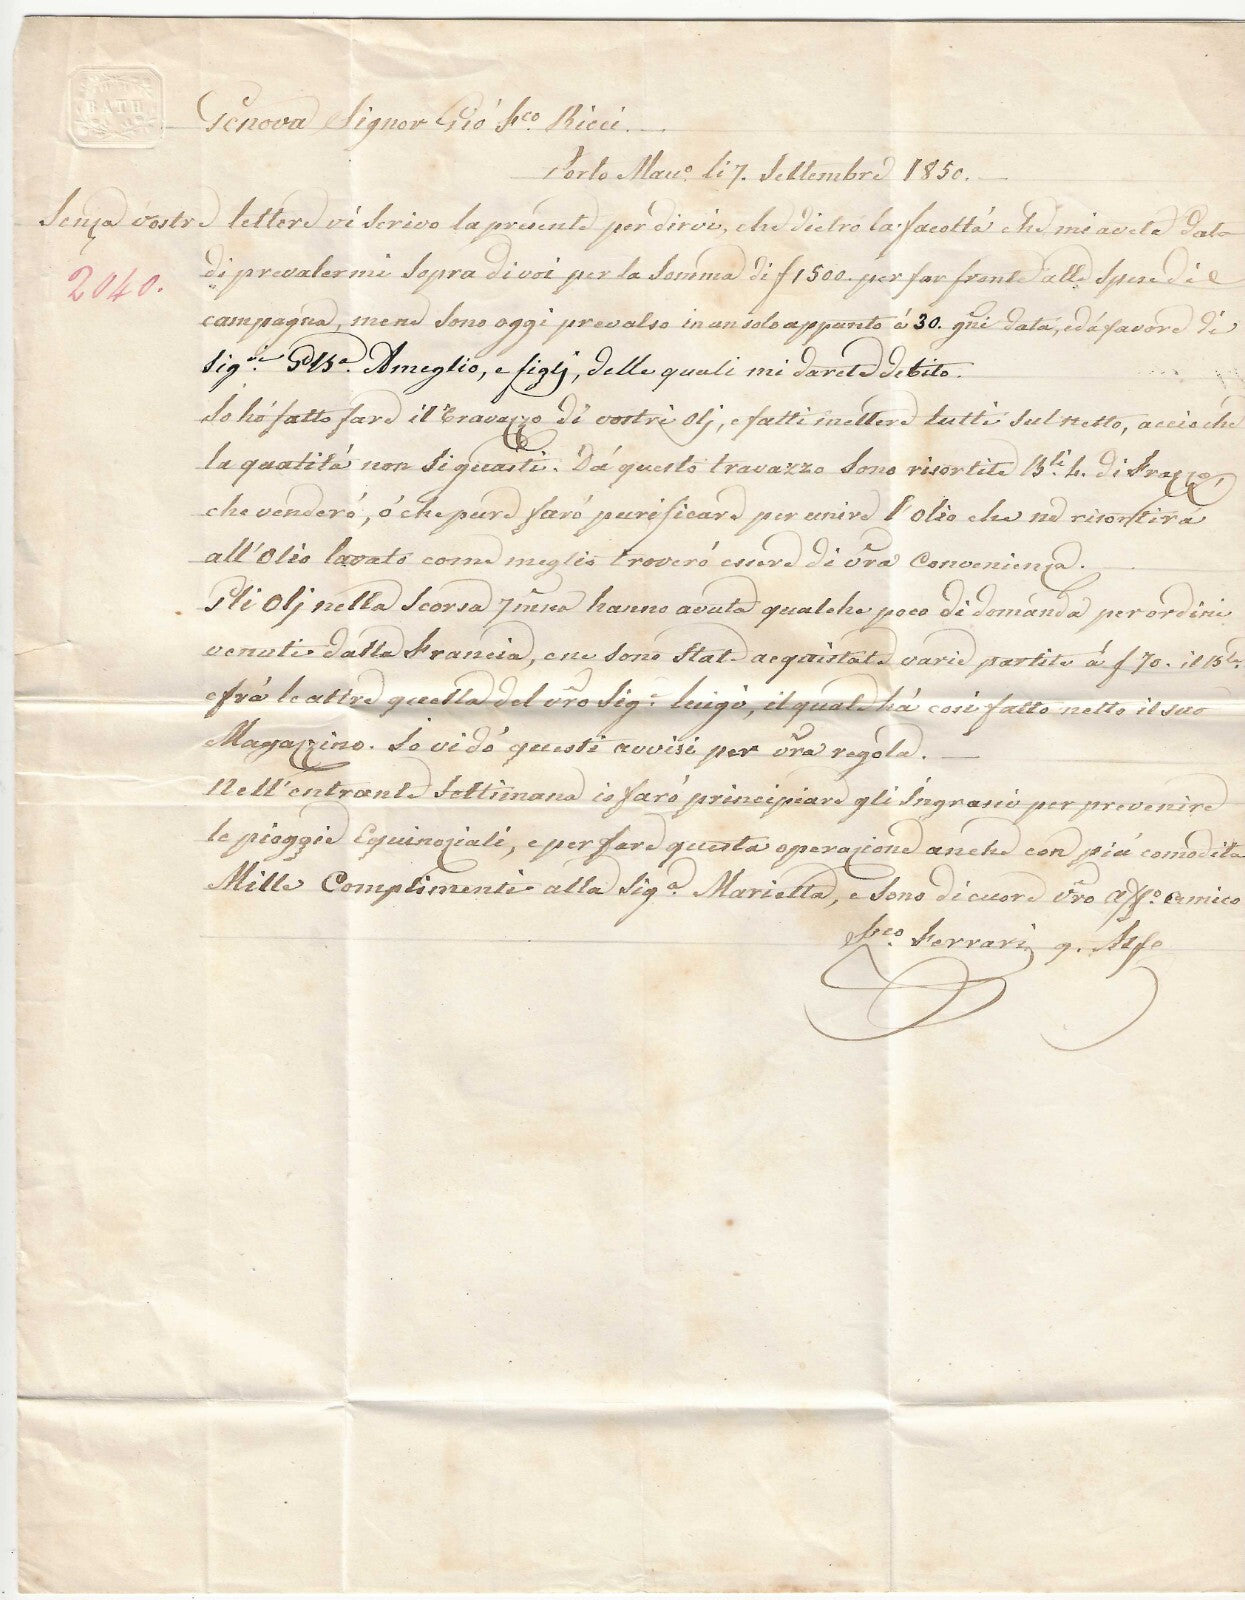 BATH
Genova Signor Gió Fco. Ricci.
Porto Mauo. li 7. Settembre 1850.
Senza vostre lettere vi scrivo la presente per dirvi, che dietro la facoltá che mi avete data
2040.
di prevalermi sopra di voi per la somma di f 1500. per far fronte alle spese di
campagna, mene sono oggi prevalso in un solo appunto á 30. gni data, ed á favore di
Sigri. GBa. Ameglio, e figlj, delle quali mi darete debito.
Io hó fatto fare il travazzo di vostri Olj, e fatti mettere tutti sul netto, accioché
la quatitá non si guasti. Dá questo travazzo sono risortite Bli. 4. di
che venderó, ó che pure faró purificare per unire l'olio che ne risortirá
all'Olio lavato come meglio troveró essere di vra convenienza.
Gli Olj nella scorsa 7mna hanno avuta qualche poco di domanda per ordini
venuti dalla Francia, ene sono state acquistate varie partite á f 70. il Ble.
e frá le altre quella del vro Sigr. Luigi, il quale há cosí fatto netto il suo
Magazzino. Io vi dó questi avvisi per vra regola.
Nell'entrante settimana io faró principiare gli Ingrassi per prevenire
le pioggie Equinoziali, e per fare questa operazione anche con piú comoditá
Mille Complimenti alla Siga. Marietta, e sono di cuore vro affo. amico
Fco. Ferrari q.